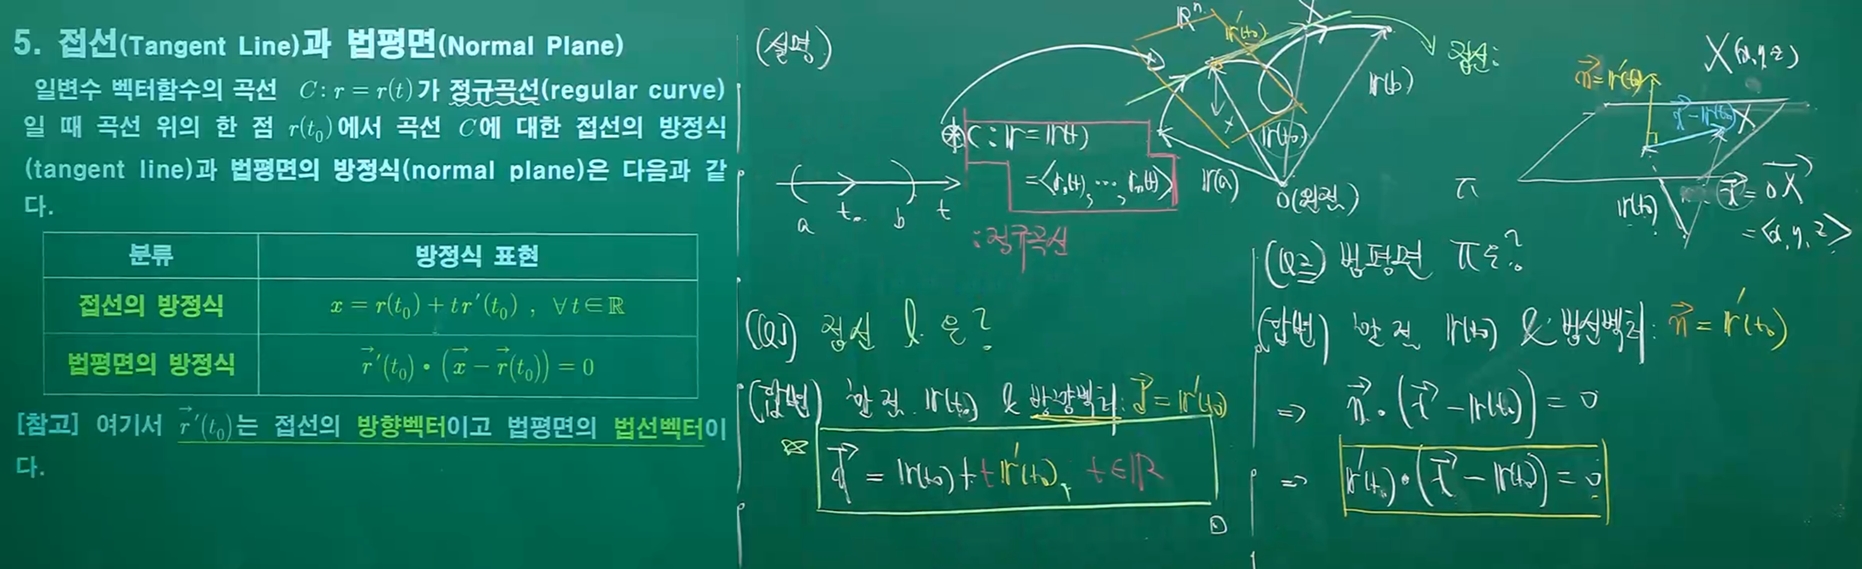 5. 접선(Tangent Line)과 법평면(Normal Plane)
일변수 벡터함수의 곡선 C : r = r(t)가 정규곡선(regular curve)
일 때 곡선 위의 한 점 r(t₀)에서 곡선 C에 대한 접선의 방정식
(tangent line)과 법평면의 방정식(normal plane)은 다음과 같
다.
분류 방정식 표현
접선의 방정식 x = r(t₀) + t r′(t₀) , ∀t∈ℝ
법평면의 방정식 r⃗′(t₀)•(x⃗ − r⃗(t₀)) = 0
[참고] 여기서 r⃗′(t₀)는 접선의 방향벡터이고 법평면의 법선벡터이
다.
(설명)
ℝⁿ
r′(t₀)
X
접선:
r(b)
r(t₀)
r(a)
O(원점)
C : r = r(t)
= <r₁(t), …, rₙ(t)>
: 정규곡선
a t₀ b t
n⃗ = r′(t₀)
X(x, y, z)
x⃗ − r(t₀) X
π
r(t₀)
x⃗ = OX⃗
= <x, y, z>
(Q1) 접선 l 은?
(답변) 한 점 r(t₀) & 방향벡터: d⃗ = r′(t₀)
x⃗ = r(t₀) + t r′(t₀), t∈ℝ
(Q2) 법평면 π 은?
(답변) 한 점 r(t₀) & 법선벡터: n⃗ = r′(t₀)
⇒ n⃗ • (x⃗ − r(t₀)) = 0
⇒ r′(t₀) • (x⃗ − r(t₀)) = 0